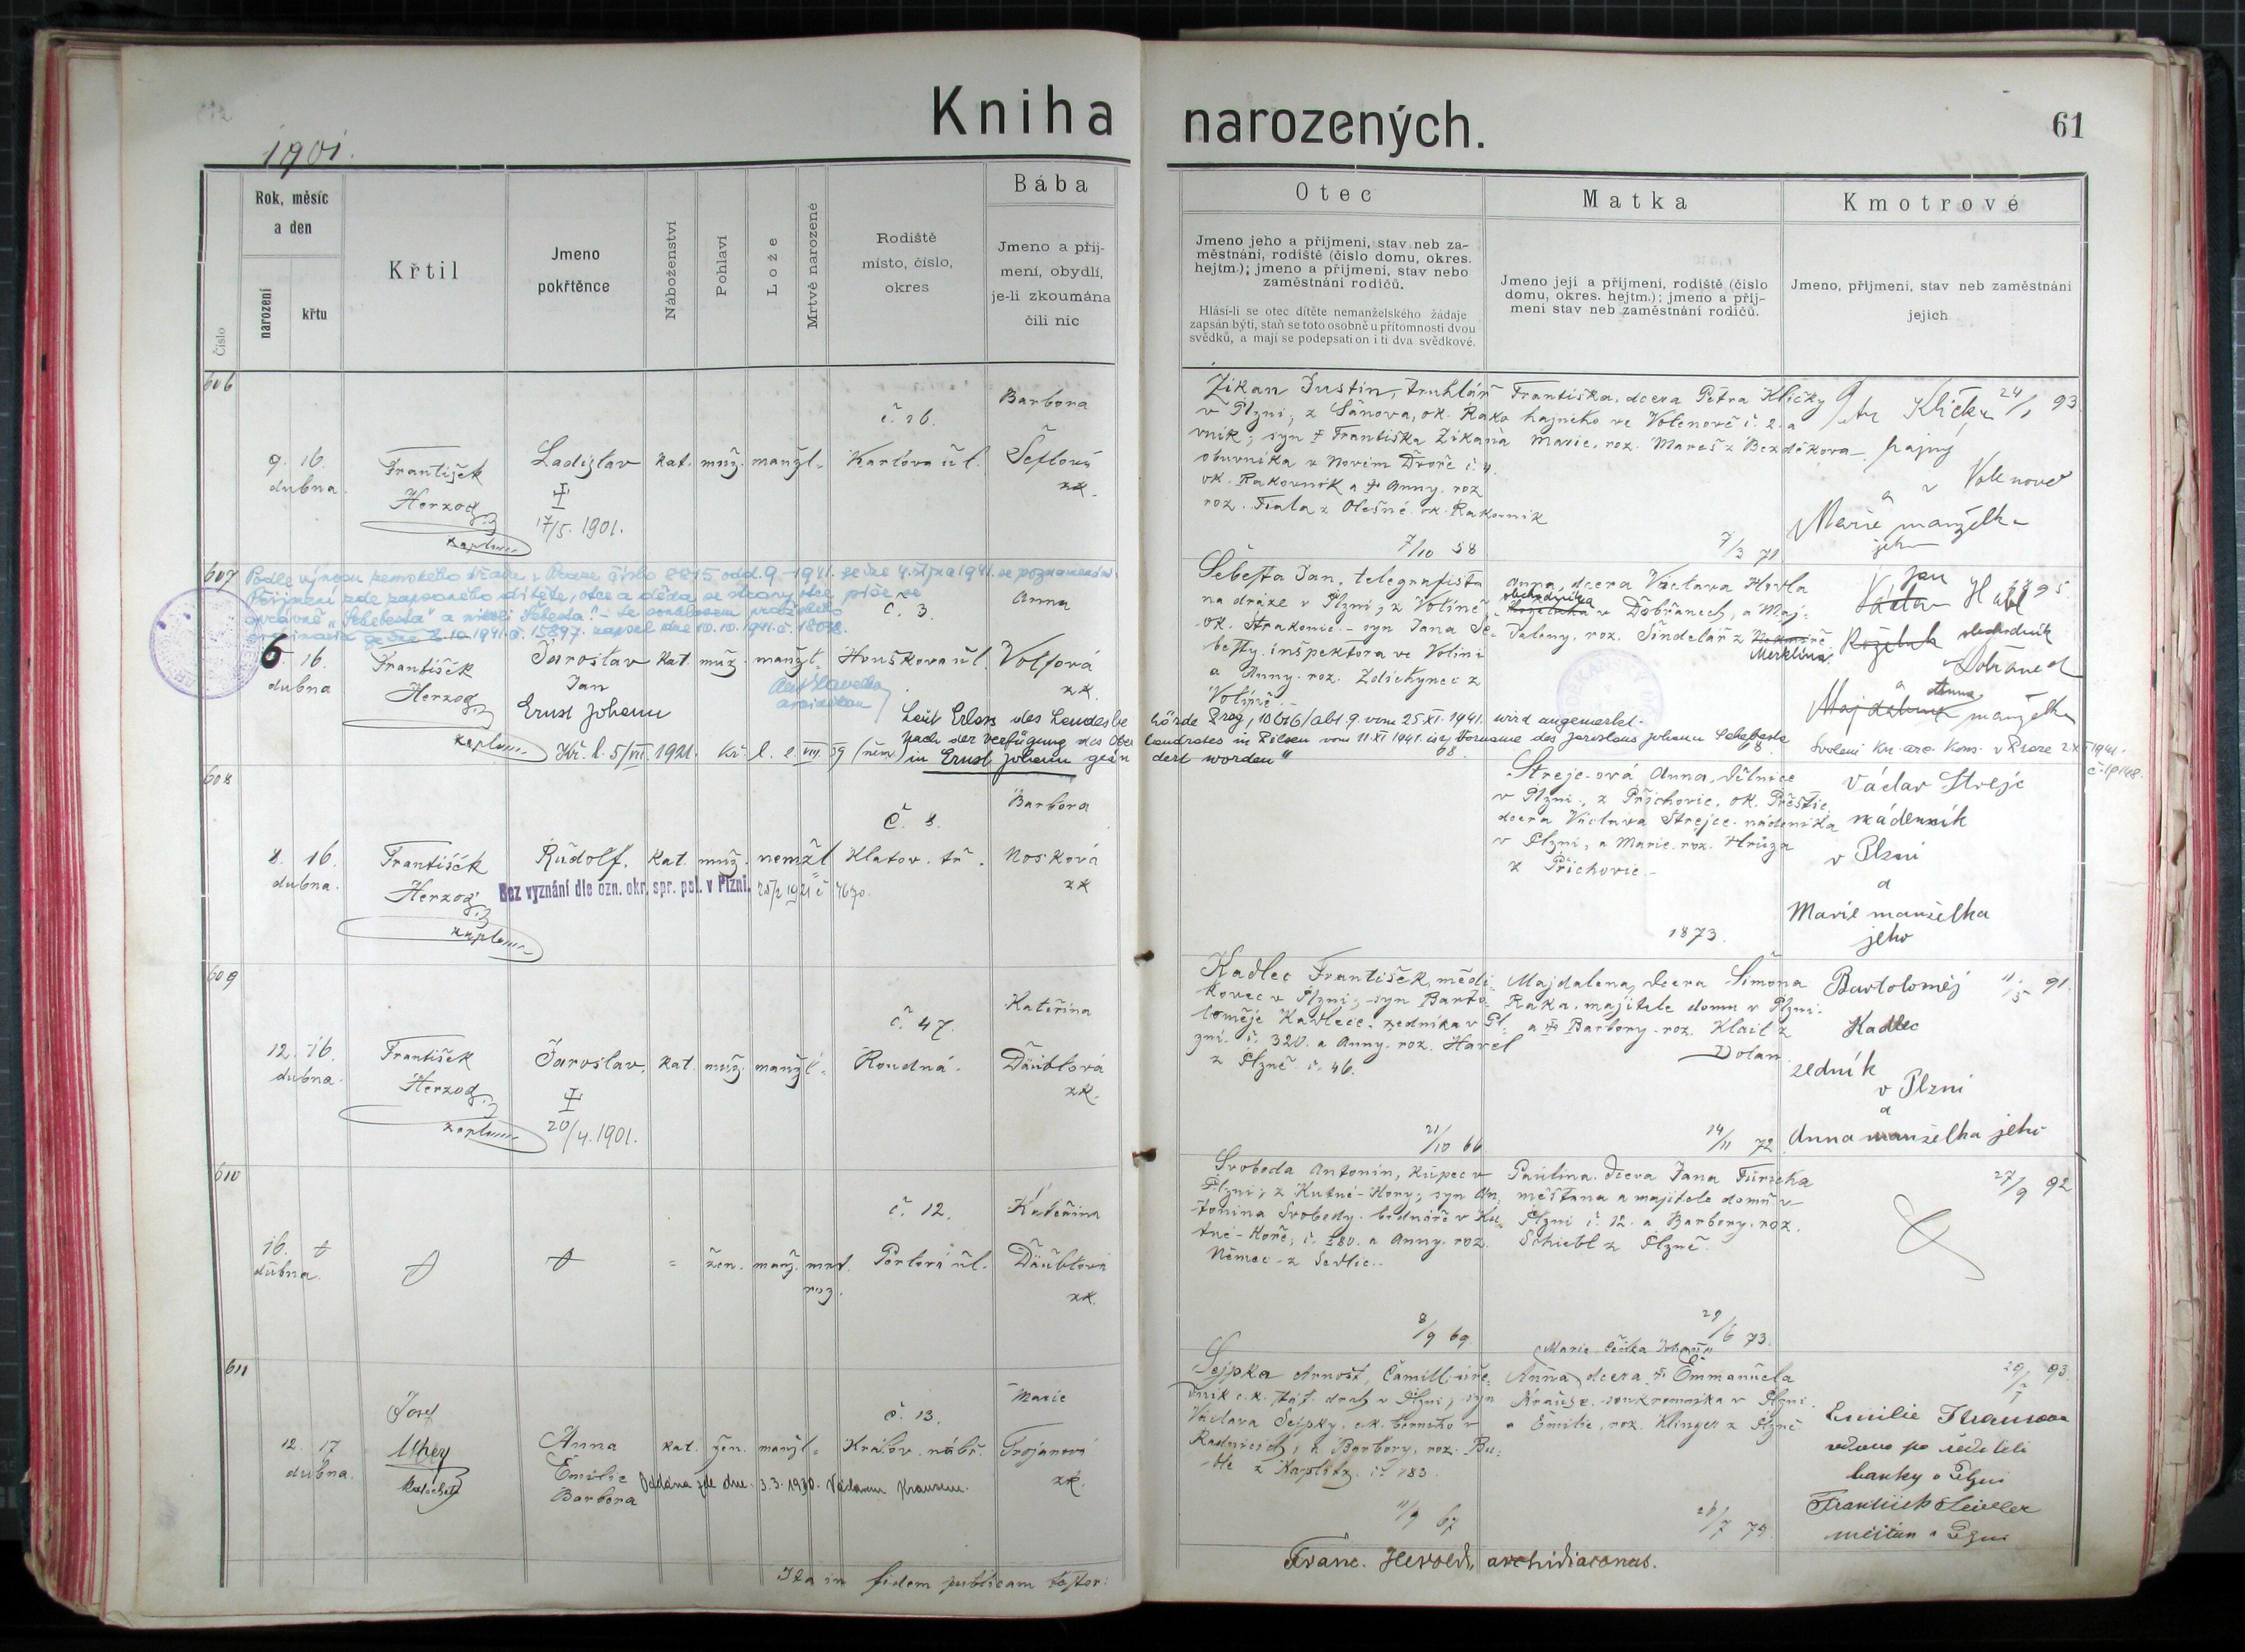 Kniha narozených.
61
1901.
Číslo
Rok, měsíc
a den
narození
křtu
Křtil
Jmeno
pokřtěnce
Náboženství
Pohlaví
Lože
Mrtvě narozené
Rodiště
místo, číslo,
okres
Bába
Jmeno a příj-
mení, obydlí,
je-li zkoumána
čili nic
Otec
Jmeno jeho a přijmení, stav neb za-
městnání, rodiště (číslo domu, okres.
hejtm.); jmeno a přijmení, stav nebo
zaměstnání rodičů.
Hlásí-li se otec dítěte nemanželského žádaje
zapsán býti, staň se toto osobně u přítomnosti dvou
svědků, a mají se podepsati on i ti dva svědkové.
Matka
Jmeno její a příjmení, rodiště (číslo
domu, okres. hejtm.); jmeno a příj-
mení stav neb zaměstnání rodičů.
Kmotrové
Jmeno, přijmení, stav neb zaměstnání
jejich
606
9. 16.
dubna.
František
Herzog
kaplan
Ladislav
17/5. 1901.
kat. muž. manžl.
č. 16.
Karlova úl.
Barbora
Šeflová
zk.
Zikan Justin, truhlář
v Plzni, z Šanova, ok. Rako
vník; syn † Františka Zikana
obuvníka v Novém Dvoře č. 4.
ok. Rakovník a † Anny. roz
roz. Fiala z Olešné ok. Rakovník
7/10 58
Františka, dcera Petra Kličky
hajného ve Volenově č. 2. a
Marie, roz. Mareš z Bezděkova
7/3 71
Petr Klička 24/1 93.
hajný
v Volenově
a
Marie manželka
jeho
607
Podle výnosu zemského úřadu v Praze číslo
Příjmení zde zapsaného dítěte, otce a děda se strany otce píše se
správně „Schebesta" a nikoli „Šebesta".
1941. č. 15897. zapsal dne 10.10.1941. č. 18038.
6. 16.
dubna
František
Herzog
kaplan
Jaroslav
Jan
Ernst Johann
kat. muž. manžl.
č. 3.
Houškova úl.
Anna
Volfová
zk.
Šebesta Jan, telegrafista
na dráze v Plzni; z Volině
ok. Strakonic - syn Jana Še-
besty. inšpektora ve Volini
a Anny. roz. Zdichynec z
Volině.
Anna, dcera Václava Hubla
obchodníka
v Dobřanech, a Maj-
daleny. roz. Šindelář z
Merklína.
Jan
Hubl 95.
obchodník
Dobřanech
a Anna
manželka
Laut Erlass des Landesbehörde Prag, vom 25.XI.1941. wird angemerkt.
nach der Verfügung des Oberlandrates in Pilsen vom 11.XI.1941. ist Vorname des Jaroslaus Johann Schebesta
in Ernst Johann geändert worden"
68
68.
č. 19148.
608
8. 16.
dubna.
František
Herzog
kaplan
Rudolf.
kat. muž. nemžl
Bez vyznání dle ozn. okr. spr. pol. v Plzni.
č. 8.
Klatov. tř.
Barbora
Nosková
zk
Strejc-ová Anna, dělnice
v Plzni., z Příchovic, ok. Přeštic,
dcera Václava Strejce nádeníka
v Plzni, a Marie. roz. Hrůza
z Příchovic.
1873.
Václav Strejc
nádenník
v Plzni
a
Marie manželka
jeho
609
12. 16.
dubna.
František
Herzog
kaplan
Jaroslav.
20/4.1901.
kat. muž. manžl.
č. 47.
Roudná.
Kateřina
Däublová
zk.
Kadlec František, mědi-
kovec v Plzni, syn Barto-
loměje Kadlece. zedníka v Pl-
zni. č. 320. a Anny. roz. Havel
z Plzně č. 46.
21/10 66
Majdalena, dcera Šimona
Raka. majitele domu v Plzni.
a † Barbory. roz. Klail z
Dolan.
14/11 72
Bartoloměj 11/5 91.
Kadlec
zedník
v Plzni
a
Anna manželka jeho
610
16. †
dubna.
žen. manž. mrt.
roz.
č. 12.
Portova úl.
Kateřina
Däublová
zk.
Svoboda Antonín, kupec v
Plzni; z Kutné-Hory; syn An-
tonína Svobody. bednáře v Ku-
tné-Hoře; č. 280. a Anny. roz.
Němec z Sedlic.
8/9 69
Paulina. dcera Jana Füricha
měšťana a majitele domu v
Plzni č. 12. a Barbory. roz.
Schiebl z Plzně.
29/6 73.
27/9 92
611
12. 17
dubna.
Josef
Uhey
katecheta
Anna
Emilie
Barbora
kat. žen. manžl.
Oddána zde dne. 3.3.1930. Václavem Krausem.
č. 13.
Králov. nábř.
Marie
Trojanová
zk.
Sejpka Arnošt, Camill. úře-
dník c.k. stát. drah v Plzni; syn
Václava Sejpky. c.k. berního v
Radnicích; a Barbory, roz. Bu-
ble z Kaplitz. č. 183.
11/9 67
Anna dcera † Emmanuela
Krause. soukromníka v Plzni.
a Emilie, roz. Klinger z Plzně
26/7 79
29/7 93.
Emilie Krausova
vdova po řediteli
banky v Plzni
František
měšťan v Plzni
Ita in fidem publicam testor:
Franc. Herold, archidiaconus.